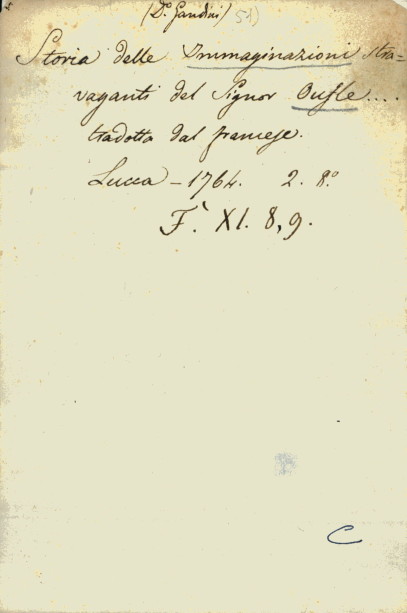 (Dr. Gandini) 51)
Storia delle Immaginazioni stra-
vaganti del Signor Oufle....
tradotta dal francese.
Lucca - 1764. 2. 8.º
F. XI. 8, 9.
C